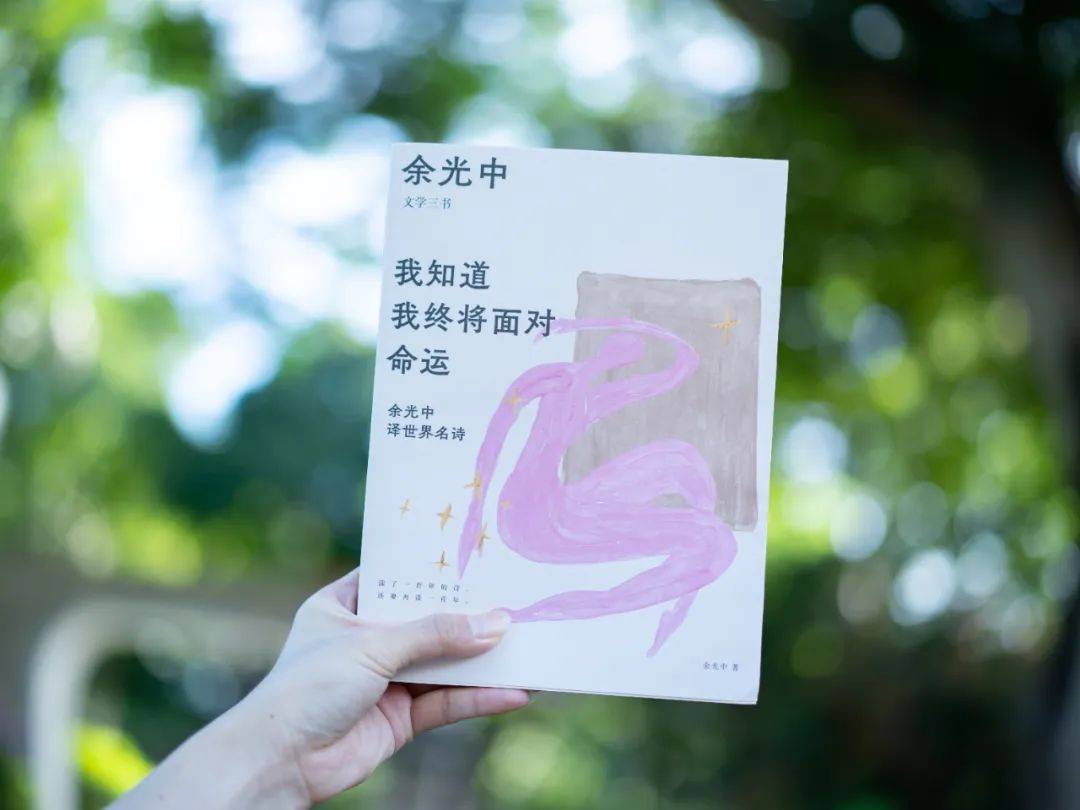 余光中
文学三书
我知道
我终将面对
命运
余光中
译世界名诗
读了一百年的诗，
还要再读一百年。
余光中 著